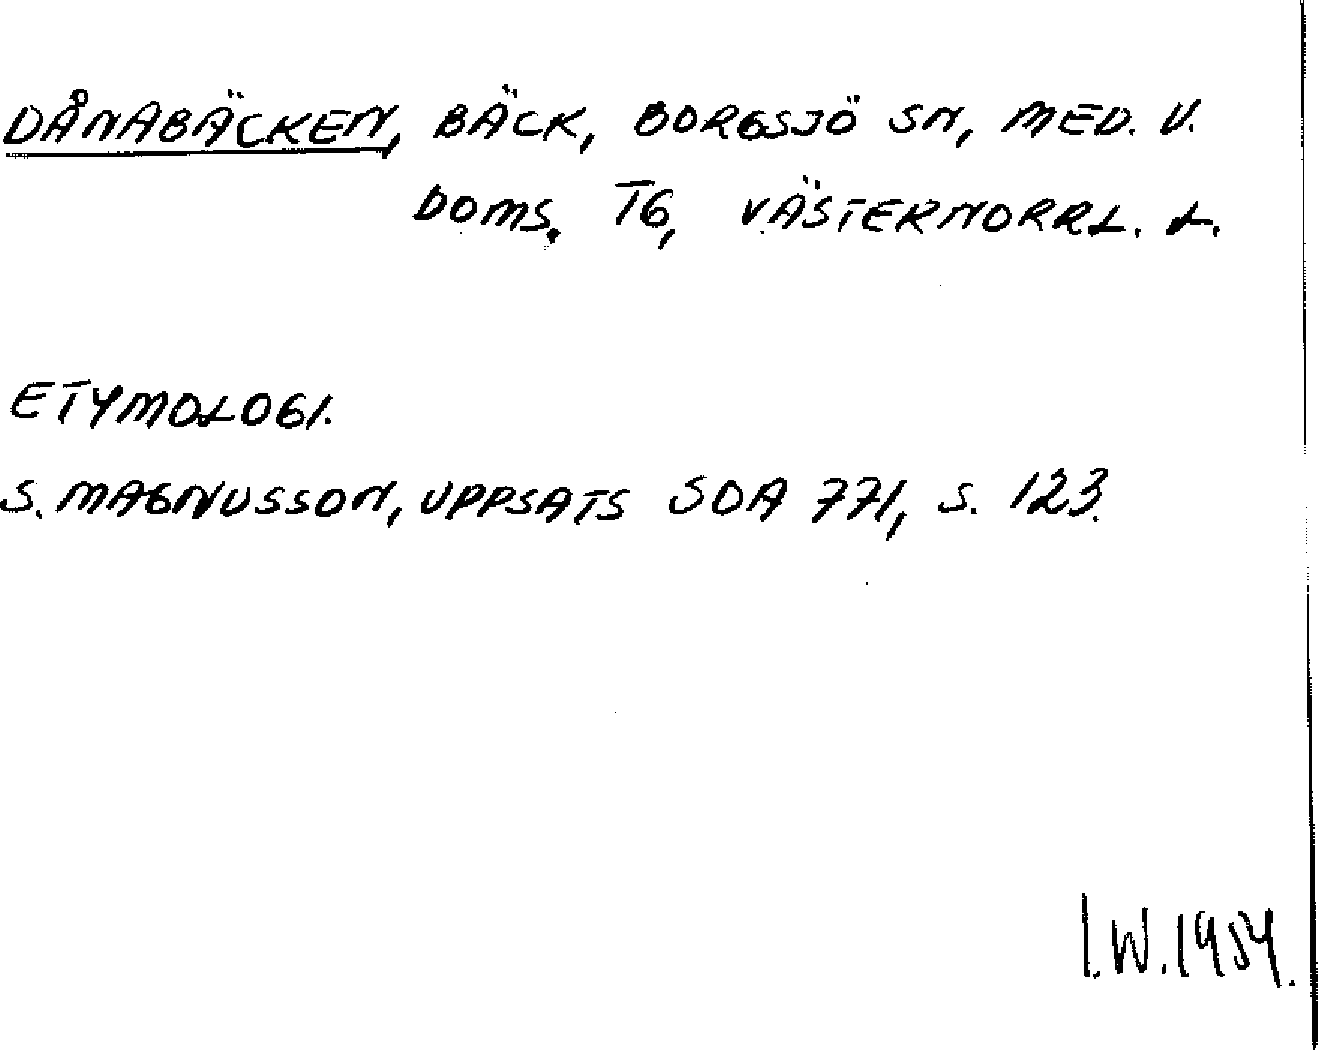 DÅNABÄCKEN, BÄCK, BORGSJÖ SN, MED. V.
DOMS. TG, VÄSTERNORRL. L.
ETYMOLOGI.
S. MAGNUSSON, UPPSATS SOA 771, S. 123.
I.W. 1954.